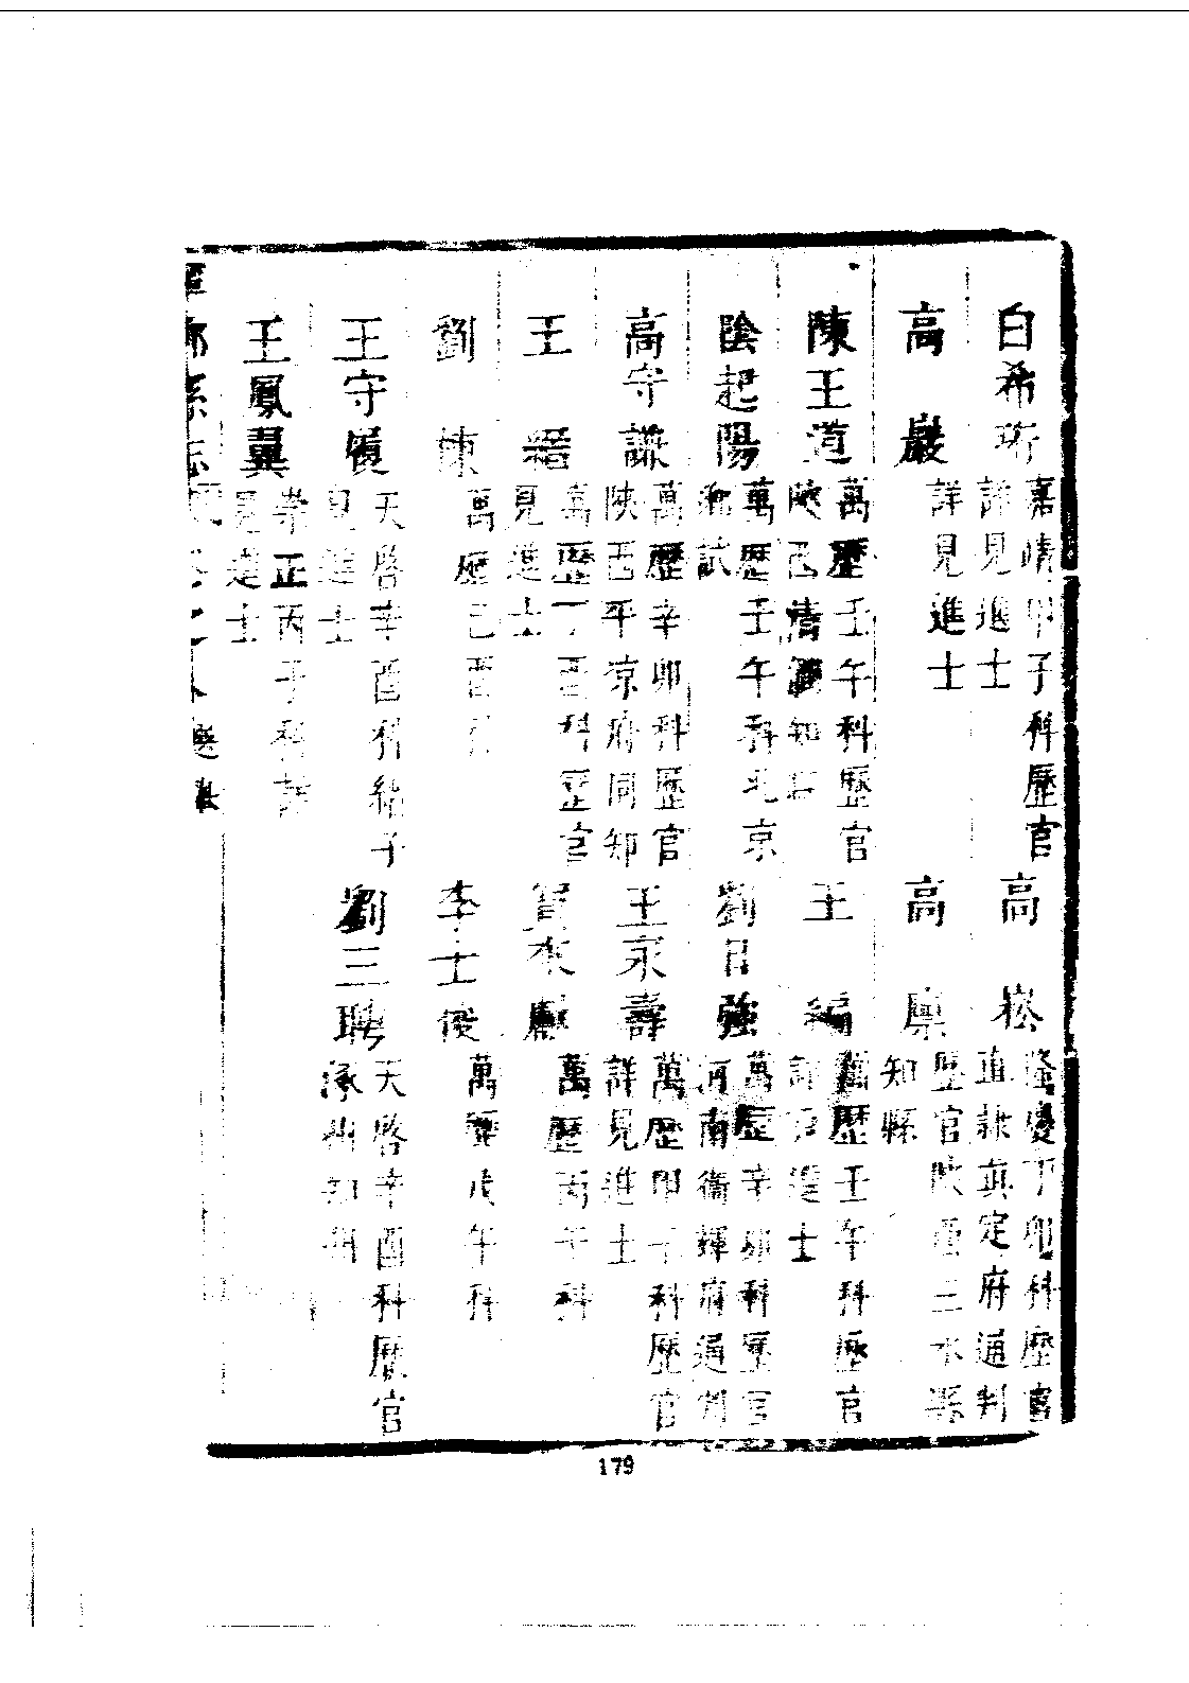 白希珩 嘉靖甲子科歷官詳見進士 高崧 隆慶丁卯科歷官直隸真定府通判
高巖 詳見進士 高廪 歷官陝西三水縣知縣
陳王道 萬歷壬午科歷官陝西清澗知縣 王編 萬歷壬午科歷官詳見進士
陰起陽 萬歷壬午科北京 試 劉日強 萬歷辛卯科歷官河南衛輝府通判
高守謙 萬歷辛卯科歷官陝西平凉府同知 王家壽 萬歷甲子科歷官詳見進士
王縉 萬歷丁酉科歷官見進士 賀 獻 萬歷丙午科
劉棟 萬歷己酉科 李士俊 萬歷戊午科
王守 天啓辛酉科 子見進士 劉三聘 天啓辛酉科歷官涿州知州
王鳳翼 崇正丙子科 見進士
志 卷之八 選舉
179